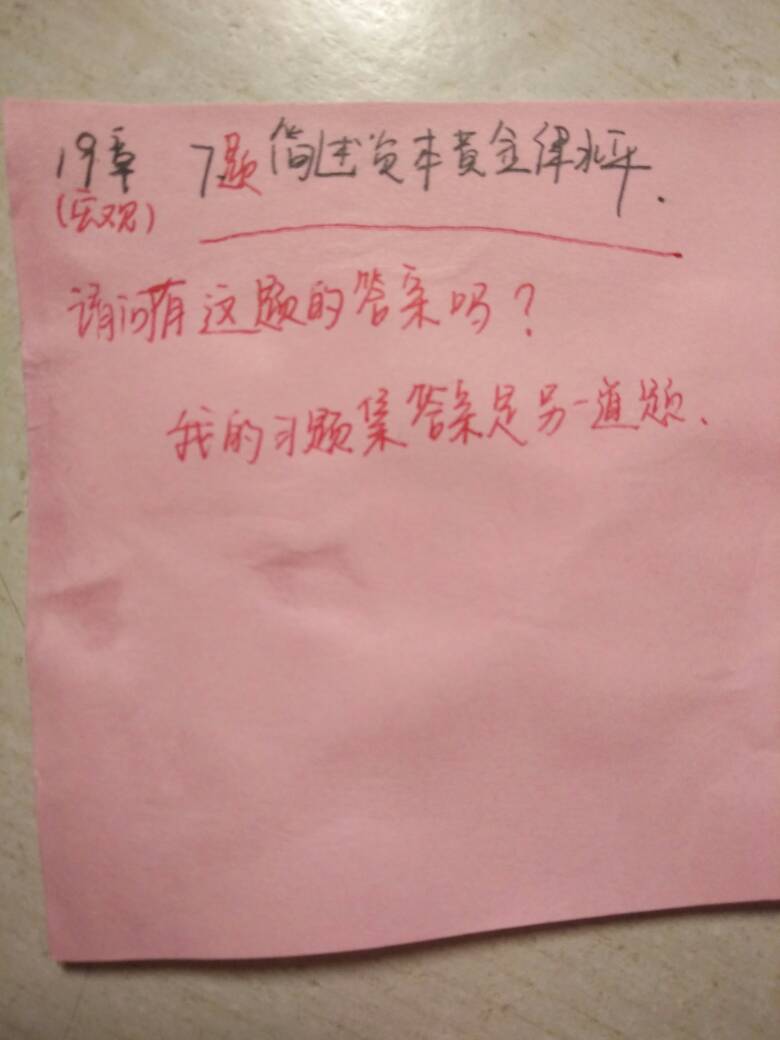 19章 7题 简述资本黄金律水平.
(宏观)
请问有这题的答案吗?
我的习题集答案是另一道题.